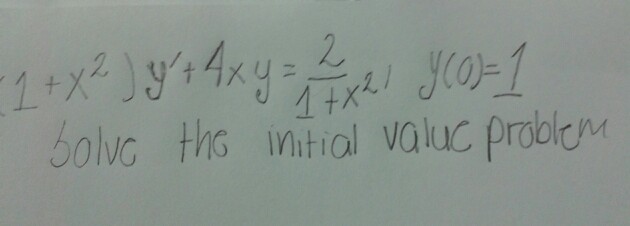 (1+x²)y'+4xy = 2/(1+x²), y(0)=1
Solve the initial value problem